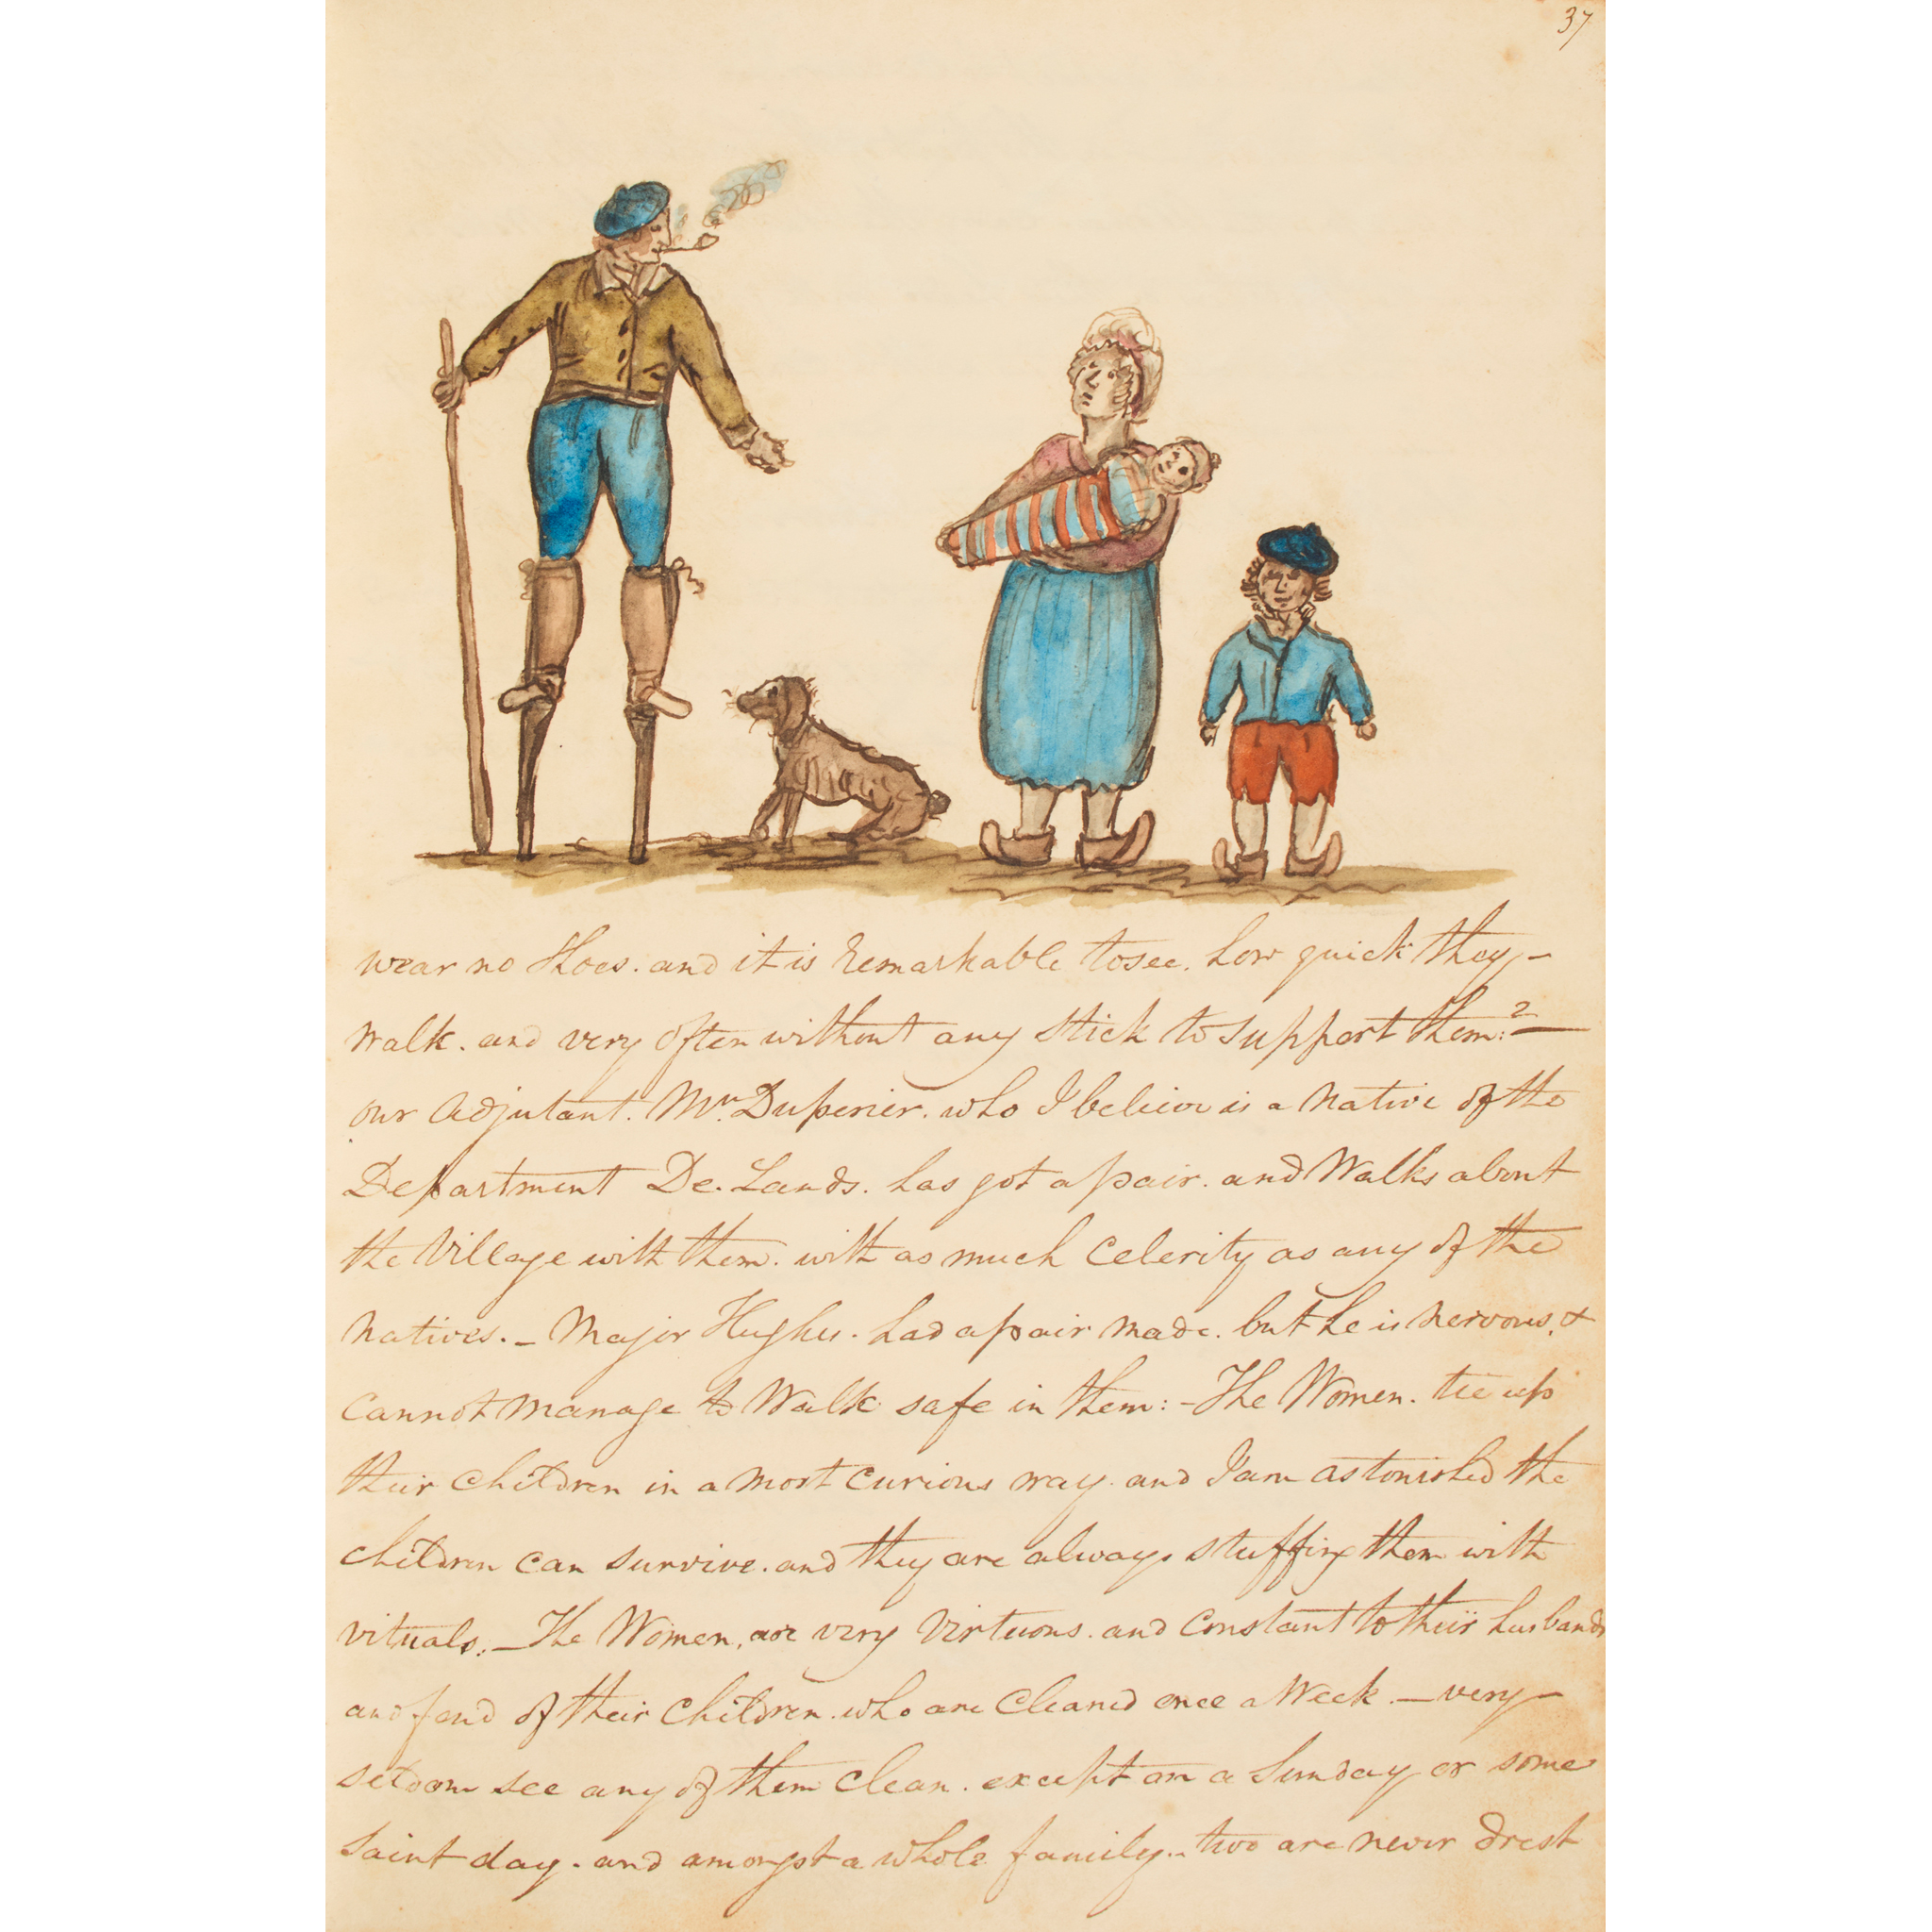 37
wear no Shoes. and it is remarkable to see. how quick they –
walk. and very often without any stick to support them:² —
our Adjutant. Mr. Duperier. who I believe is a native of the
Department De. Lands. has got a pair. and Walks about
the Village with them. with as much Celerity as any of the
natives. – Major Hughes. had a pair made. but he is nervous, &
Cannot manage to Walk safe in them: – The Women. tie up
their Children in a most curious way. and I am astonished the
children can survive. and they are always stuffing them with
vituals. – The Women, are very virtuous. and Constant to their husbands
and fond of their Children. who are Cleaned once a Week. — very –
seldom see any of them Clean. except on a Sunday or some
Saint day. and amongst a whole family – two are never drest